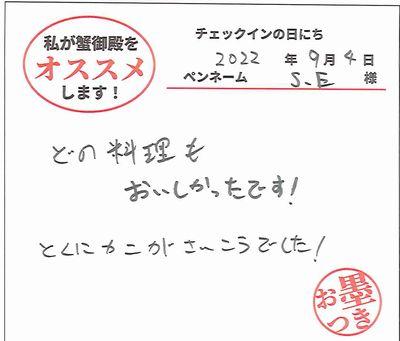 私が蟹御殿を
オススメ
します！
チェックインの日にち
2022 年 9月 4日
ペンネーム S.E 様
どの料理も
おいしかったです!
とくにカニがさいこうでした!
お墨つき